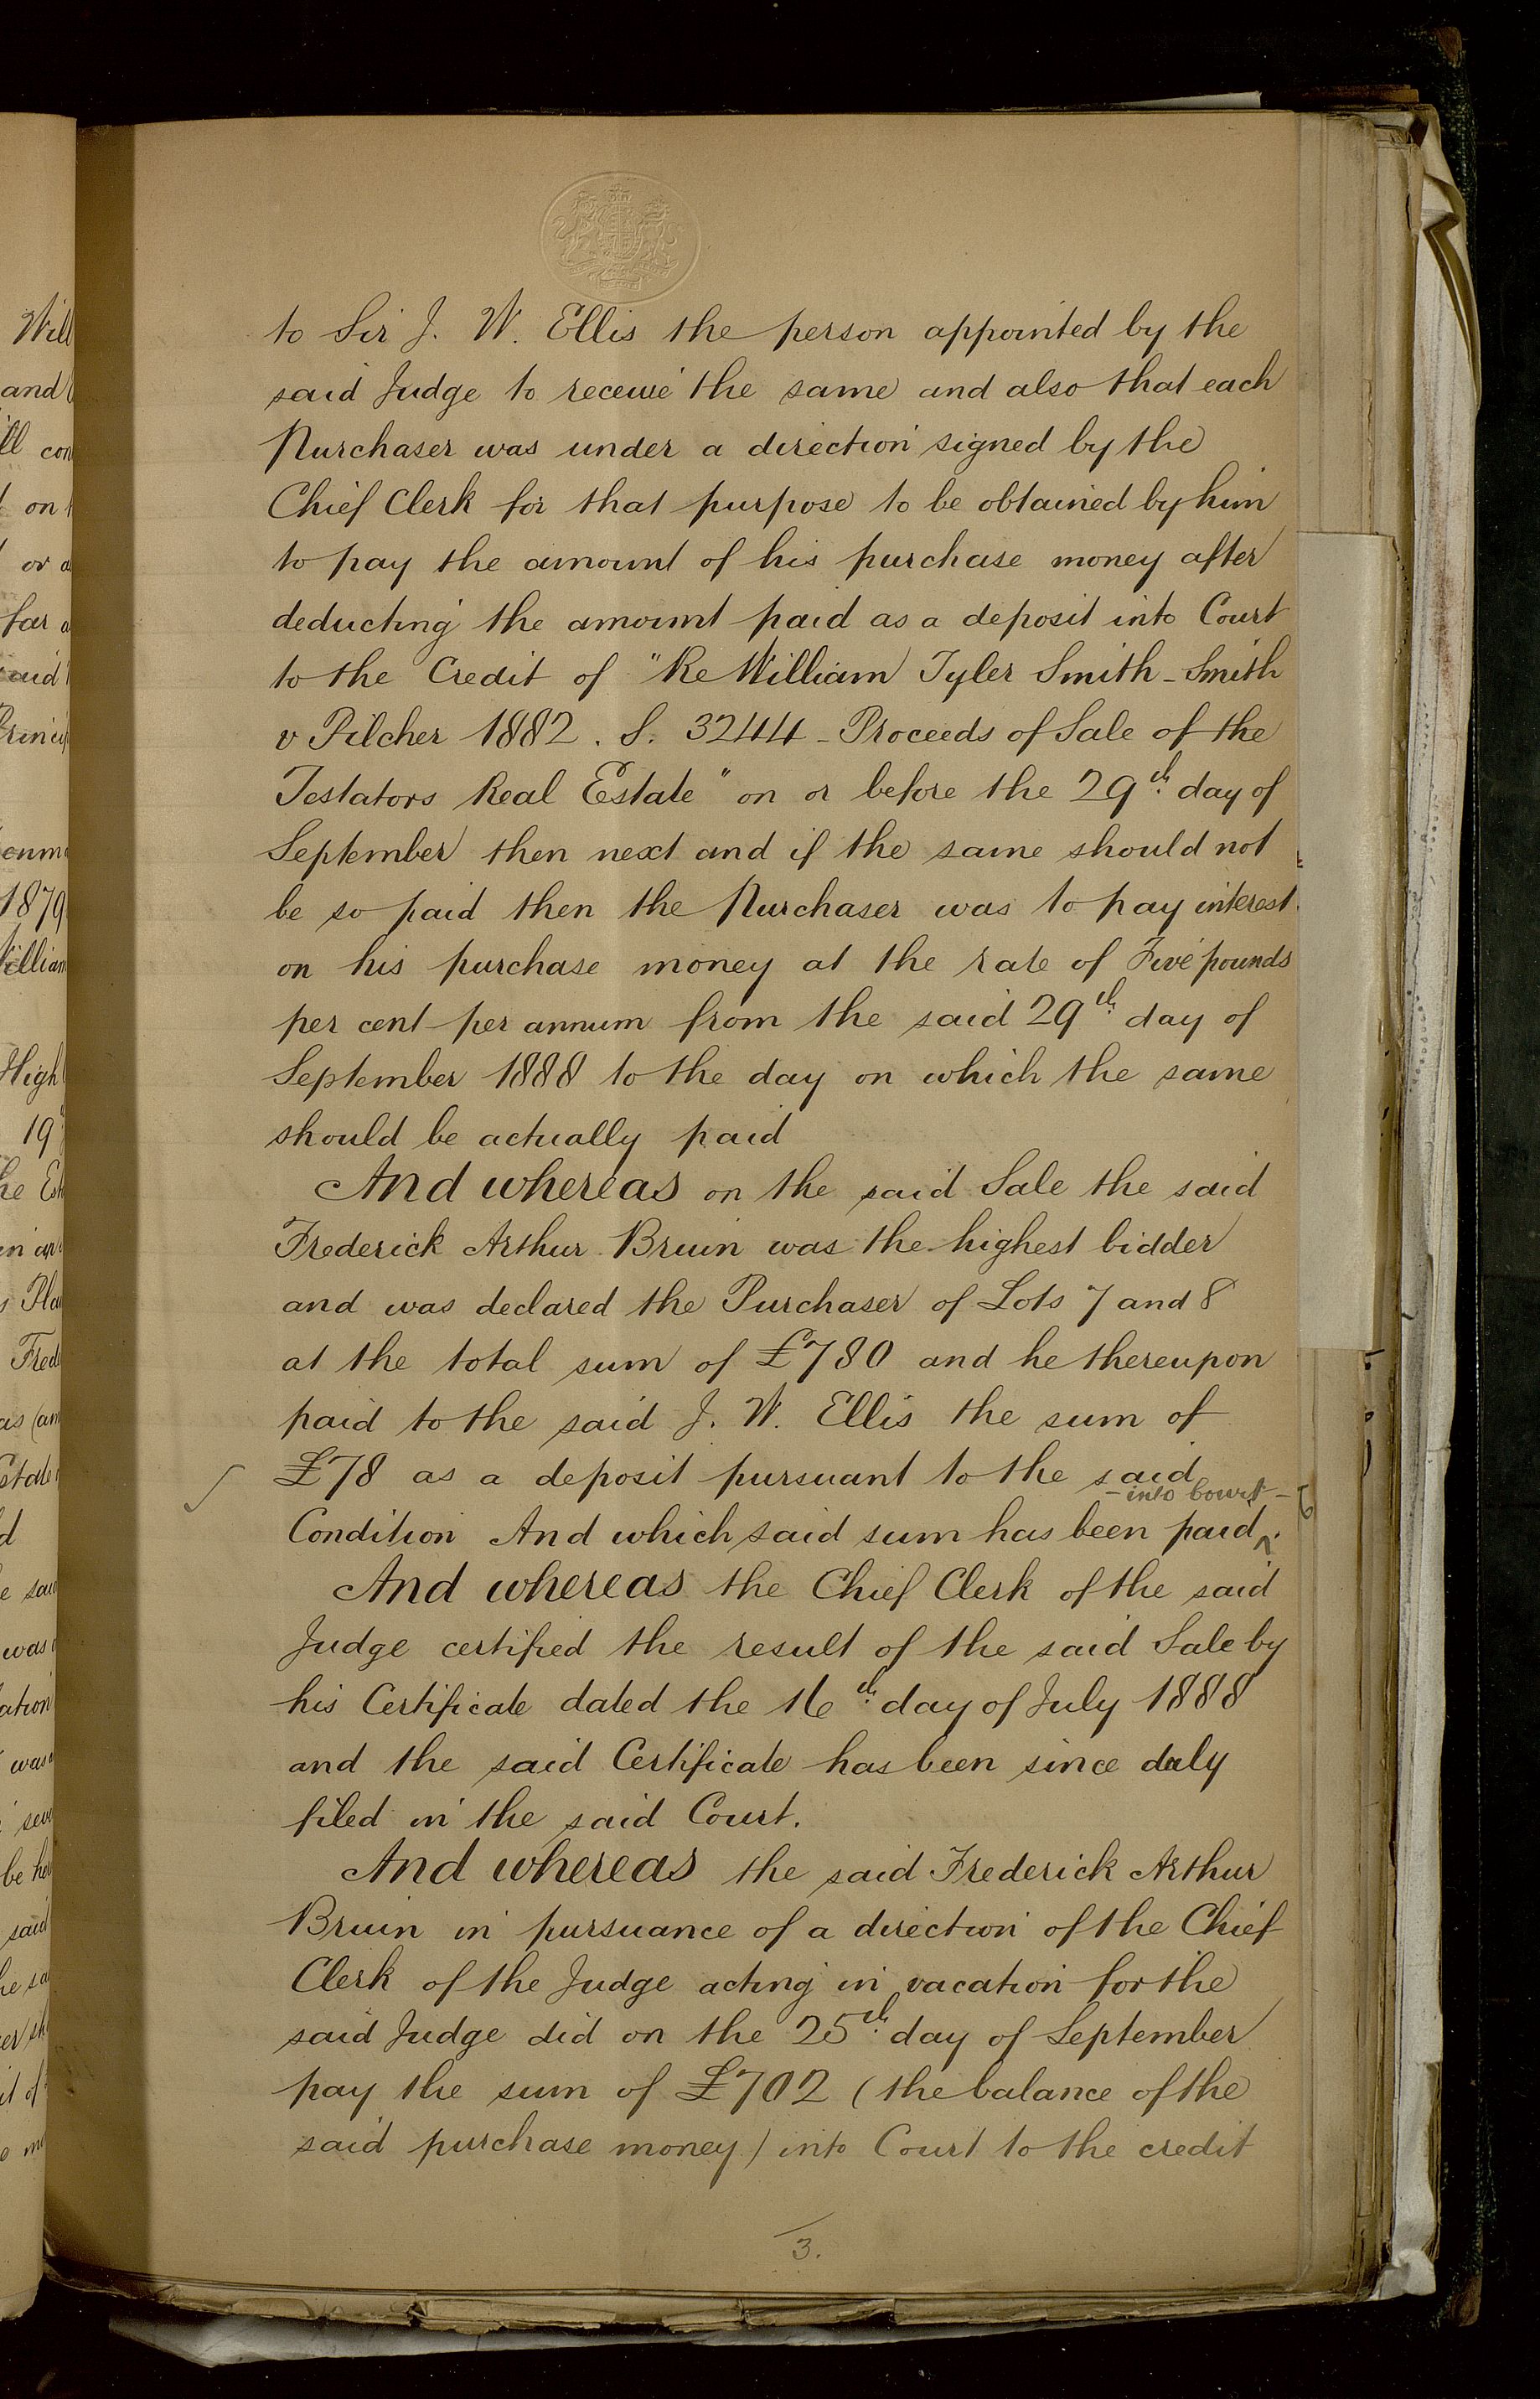 to Sir J. W. Ellis the person appointed by the
said Judge to receive the same and also that each
Purchaser was under a direction signed by the
Chief Clerk for that purpose to be obtained by him
to pay the amount of his purchase money after
deducting the amount paid as a deposit into Court
to the Credit of "Re William Tyler Smith - Smith
v Pilcher 1882 . S. 3244 - Proceeds of Sale of the
Testators Real Estate" on or before the 29th. day of
September then next and if the same should not
be so paid then the Purchaser was to pay interest
on his purchase money at the rate of Five pounds
per cent per annum from the said 29th. day of
September 1888 to the day on which the same
should be actually paid
And whereas on the said Sale the said
Frederick Arthur Bruin was the highest bidder
and was declared the Purchaser of Lots 7 and 8
at the total sum of £780 and he thereupon
paid to the said J. W. Ellis the sum of
£78 as a deposit pursuant to the said
- into Court -
Condition And which said sum has been paid ^.
And whereas the Chief Clerk of the said
Judge certified the result of the said Sale by
his Certificate dated the 16th. day of July 1888
and the said Certificate has been since duly
filed in the said Court.
And whereas the said Frederick Arthur
Bruin in pursuance of a direction of the Chief
Clerk of the Judge acting in vacation for the
said Judge did on the 25th. day of September
pay the sum of £702 (the balance of the
said purchase money) into Court to the credit
3.